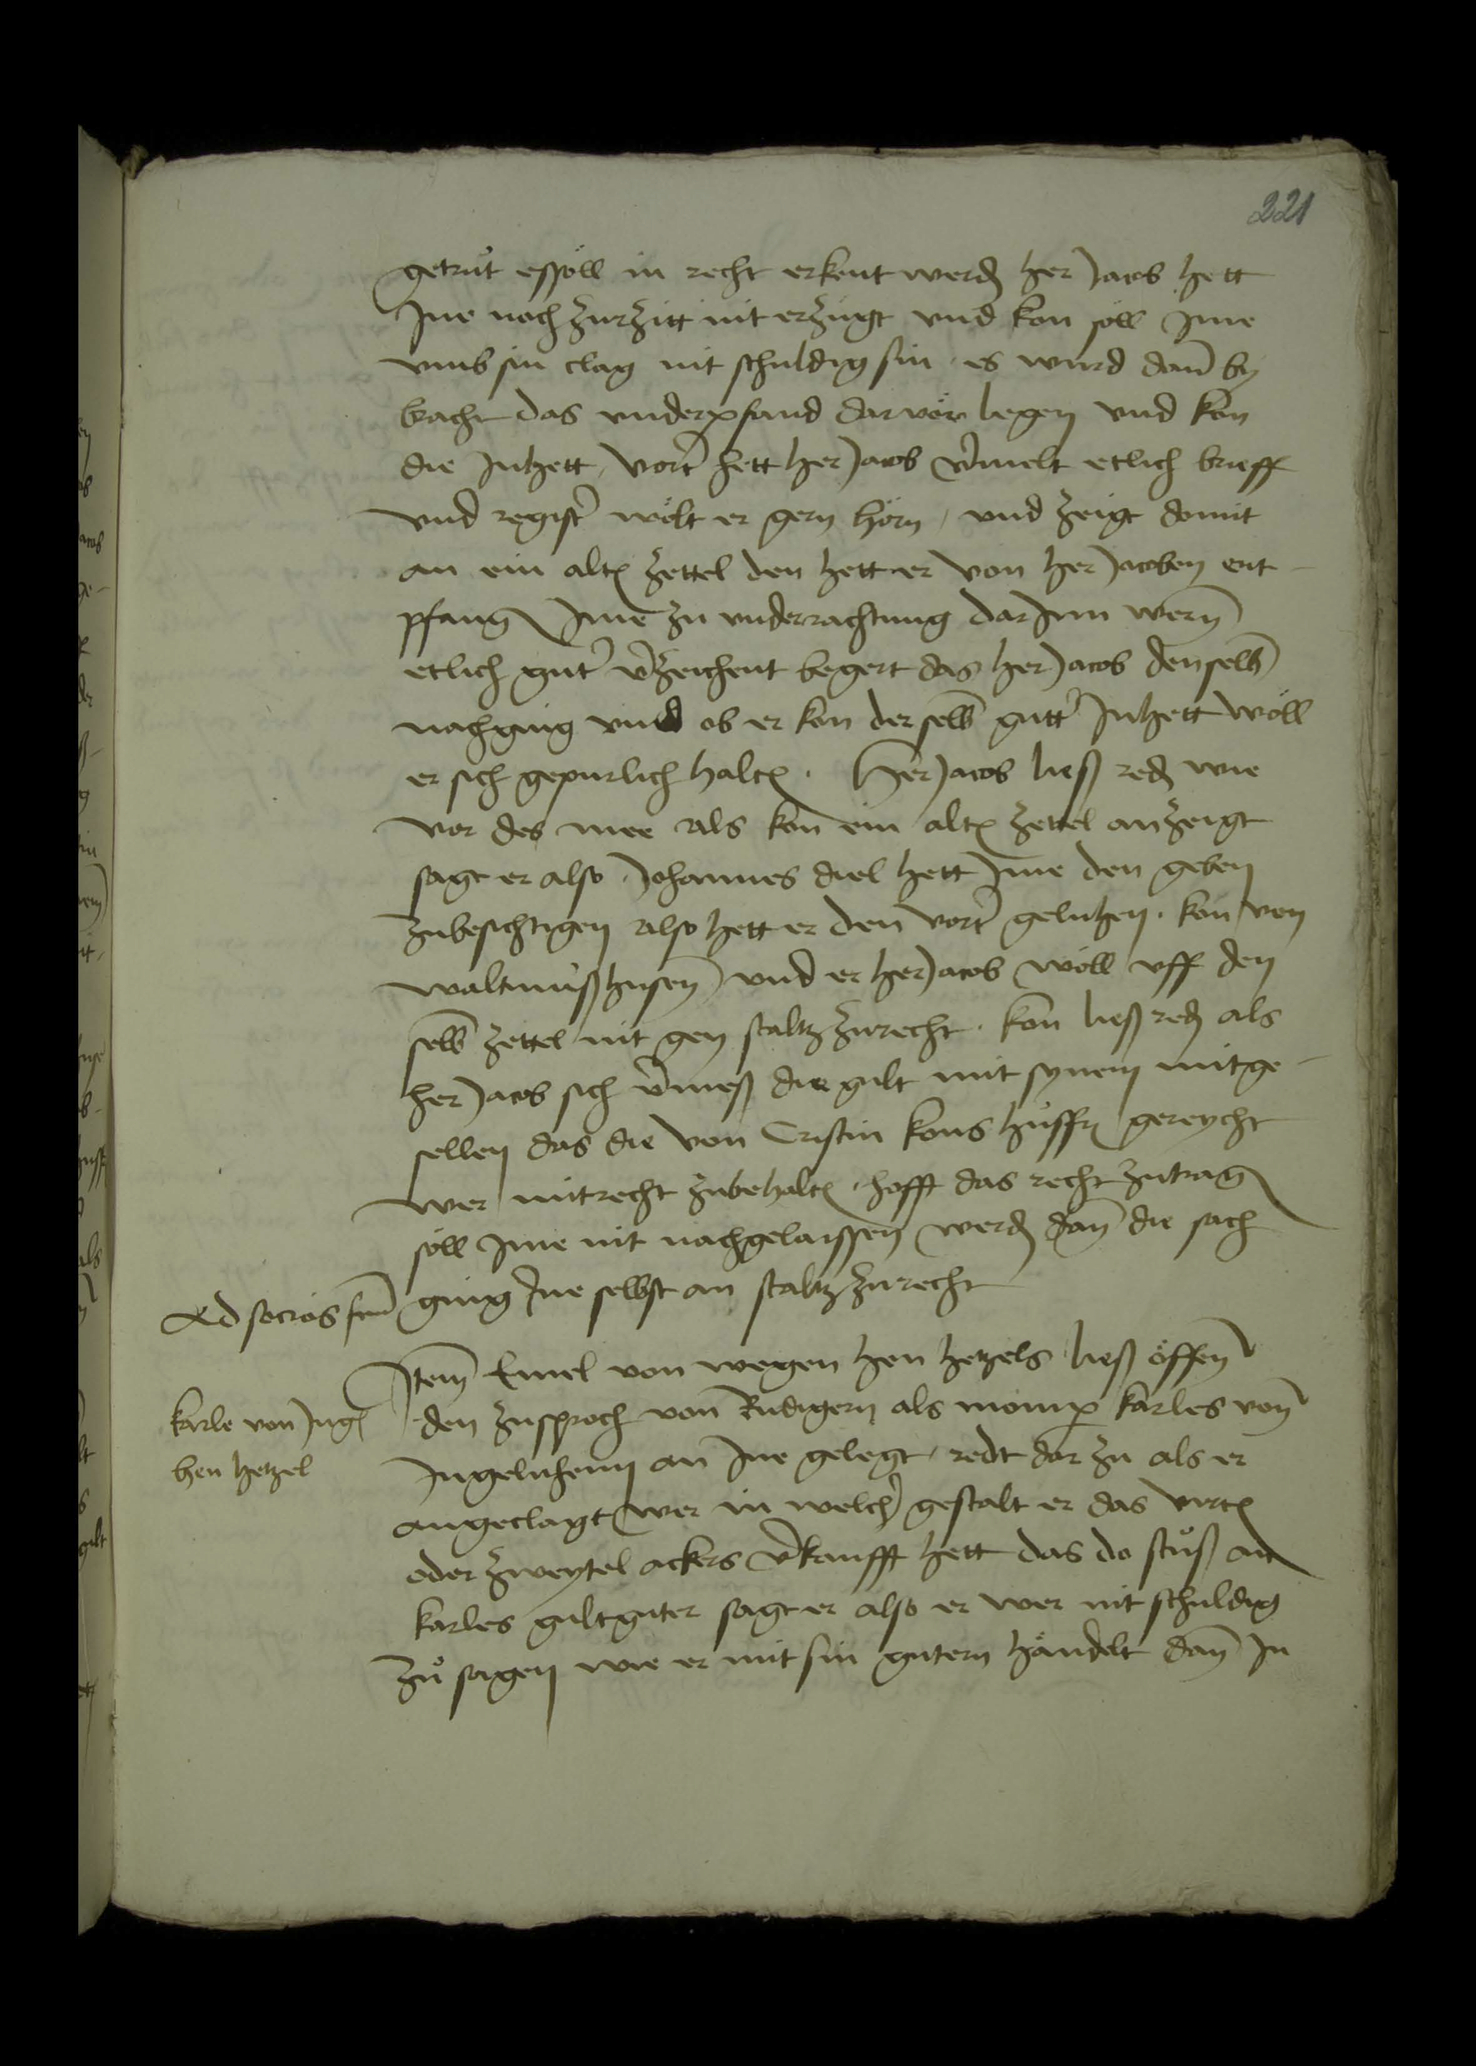 221
getrut es soll in recht erkent werd her Jacob hett
Jne noch zurzitt nit erzugt vnd kon söll Jme
vmb sin clag nit schuldig sin es wurd dan by
bracht das vnderpfand dar vor legen vnd kon
die Jnhett vort hett her Jacob vmelt etlich brieff
vnd regist wölt er gern hörn vnd zeigt domit
an ein alt zettel den hett er von her Jacoben ent-
pfang Jme zu vnderrachtung dar Jnn wern
etlich gut vzeichent begert das her Jacob denselb
nachging vnd ob er kon der selb gutt Jnhett wöll
er sich gepurlich halt. Her Jacob ließ red wie
vor des mee als kon ein alt zettel anzeigt
sagt er also Johannes diel hett Jme den geben
zubesichtigen also hett er den vort geluhen. kon von
waltmußhusen vnd er her Jacob wöll vff den
selb zettel nit gen stalt zu recht. kon ließ red als
her Jacob sich vmeß die gult mit synem mitge-
sellen das die von Cristin kons huffn gereycht
wer mitrecht zubehalt hofft das recht zutrag
söll Jme nit nachgelaissen werd dan die sach
ging Jne selbst an stalt zu recht
Ad socios
Item Emel von wegen hen hetzels ließ öffen
den zusproch von Rudigern als momp karles von
Jngelnheim an Jne gelegt redt dar zu als er
angeclagt wer in welch gestalt er das virt
oder zweytel ackers vkaufft hett das do stuß an
karles gultguter sagt er also er wer nit schuldig
zu sagen wie er mit sin gutern händelt dan Jn
karle von Jng
hen hetzel